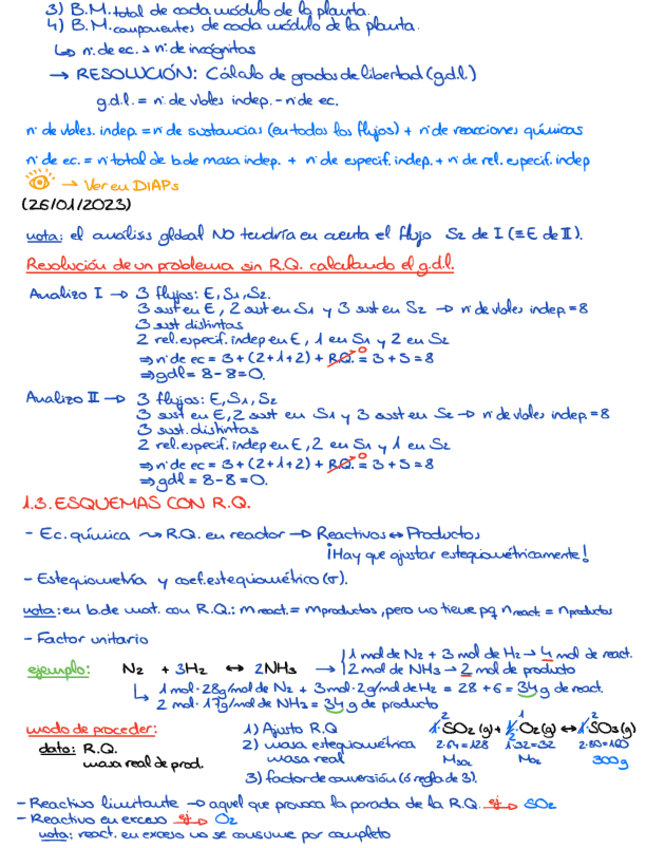 3) B.M. total de cada módulo de la planta.
4) B.M. componentes de cada módulo de la planta.
↳ nº. de ec. > nº de incógnitas
→ RESOLUCIÓN: Cálculo de grados de libertad (g.d.l.)
g.d.l. = nº de vbles indep. - nº de ec.
nº de vbles. indep. = nº de sustancias (en todos los flujos) + nº de reacciones químicas
nº de ec. = nº total de b. de masa indep. + nº de especif. indep. + nº de rel. especif. indep
→ Ver en DIAPs
(26/01/2023)
nota: el análisis global NO tendría en cuenta el flujo S2 de I (≡ E de II).
Resolución de un problema sin R.Q. calculando el g.d.l.
Analizo I → 3 flujos: E, S1, S2.
3 sust en E, 2 sust en S1 y 3 sust en S2 → nº de vbles indep. = 8
3 sust distintas
2 rel. especif. indep en E, 1 en S1 y 2 en S2
⇒ nº de ec = 3 + (2+1+2) + R.Q. 0 = 3 + 5 = 8
⇒ gdl = 8 - 8 = 0.
Analizo II → 3 flujos: E, S1, S2
3 sust en E, 2 sust en S1 y 3 sust en S2 → nº de vbles indep = 8
3 sust. distintas
2 rel. especif. indep en E, 2 en S1 y 1 en S2
⇒ nº de ec = 3 + (2+1+2) + R.Q. 0 = 3 + 5 = 8
⇒ gdl = 8 - 8 = 0.
1.3. ESQUEMAS CON R.Q.
- Ec. química ⤳ R.Q. en reactor → Reactivos ↔ Productos
¡Hay que ajustar estequiométricamente!
- Estequiometría y coef. estequiométrico (σ).
nota: en b. de mat. con R.Q.: m react. = m productos, pero no tiene pq n react. = n productos
- Factor unitario
ejemplo: N2 + 3H2 ↔ 2NH3 → 1 mol de N2 + 3 mol de H2 → 4 mol de react.
2 mol de NH3 → 2 mol de producto
↳ 1 mol · 28g/mol de N2 + 3 mol · 2g/mol de H2 = 28 + 6 = 34 g de react.
2 mol · 17g/mol de NH3 = 34 g de producto
modo de proceder: 1) Ajusto R.Q 2 1 SO2 (g) + 1 1/2 O2 (g) ↔ 2 1 SO3 (g)
dato: R.Q. 2) masa estequiométrica 2·64=128 1·32=32 2·80=160
masa real de prod. masa real MSO2 MO2 300g
3) factor de conversión (ó regla de 3).
- Reactivo limitante → aquel que provoca la parada de la R.Q. ej → SO2
- Reactivo en exceso ej → O2
nota: react. en exceso no se consume por completo